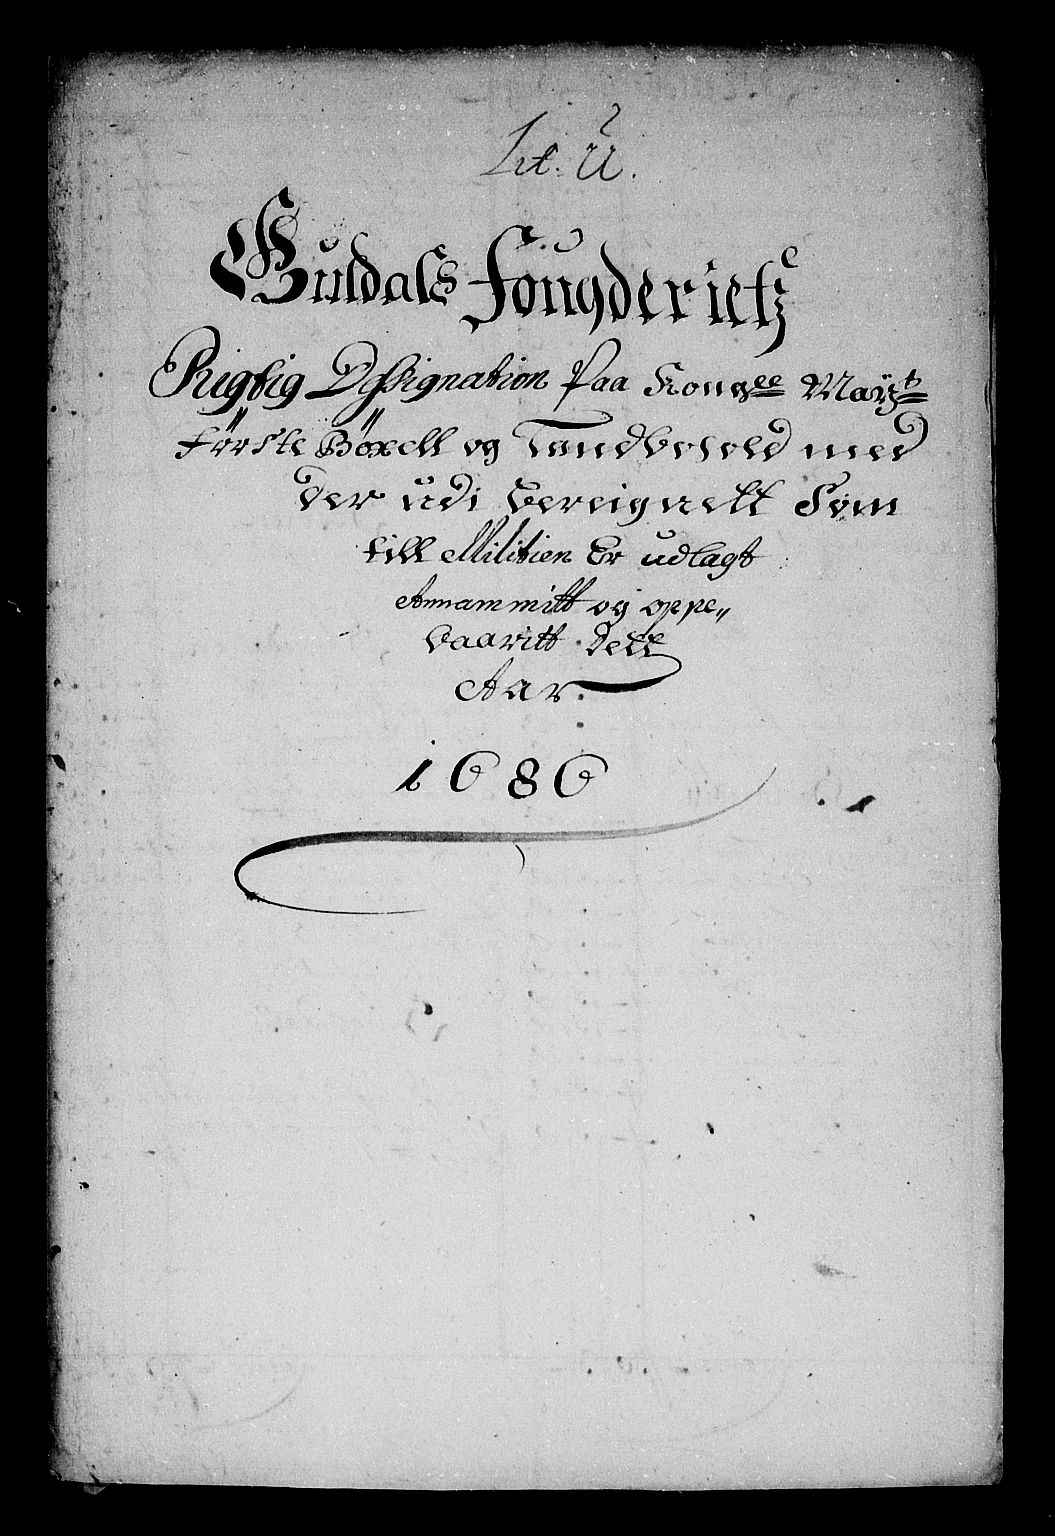 Lit: U.
Guldals Fougderietz
Rigtig Dessignation Paa Kongee Mayts
förste Böxell og Landbohold med
der udi bereignett Som
till Militien Er udlagt
Annammitt og oppe„
baaritt Dett
Aar.
1686